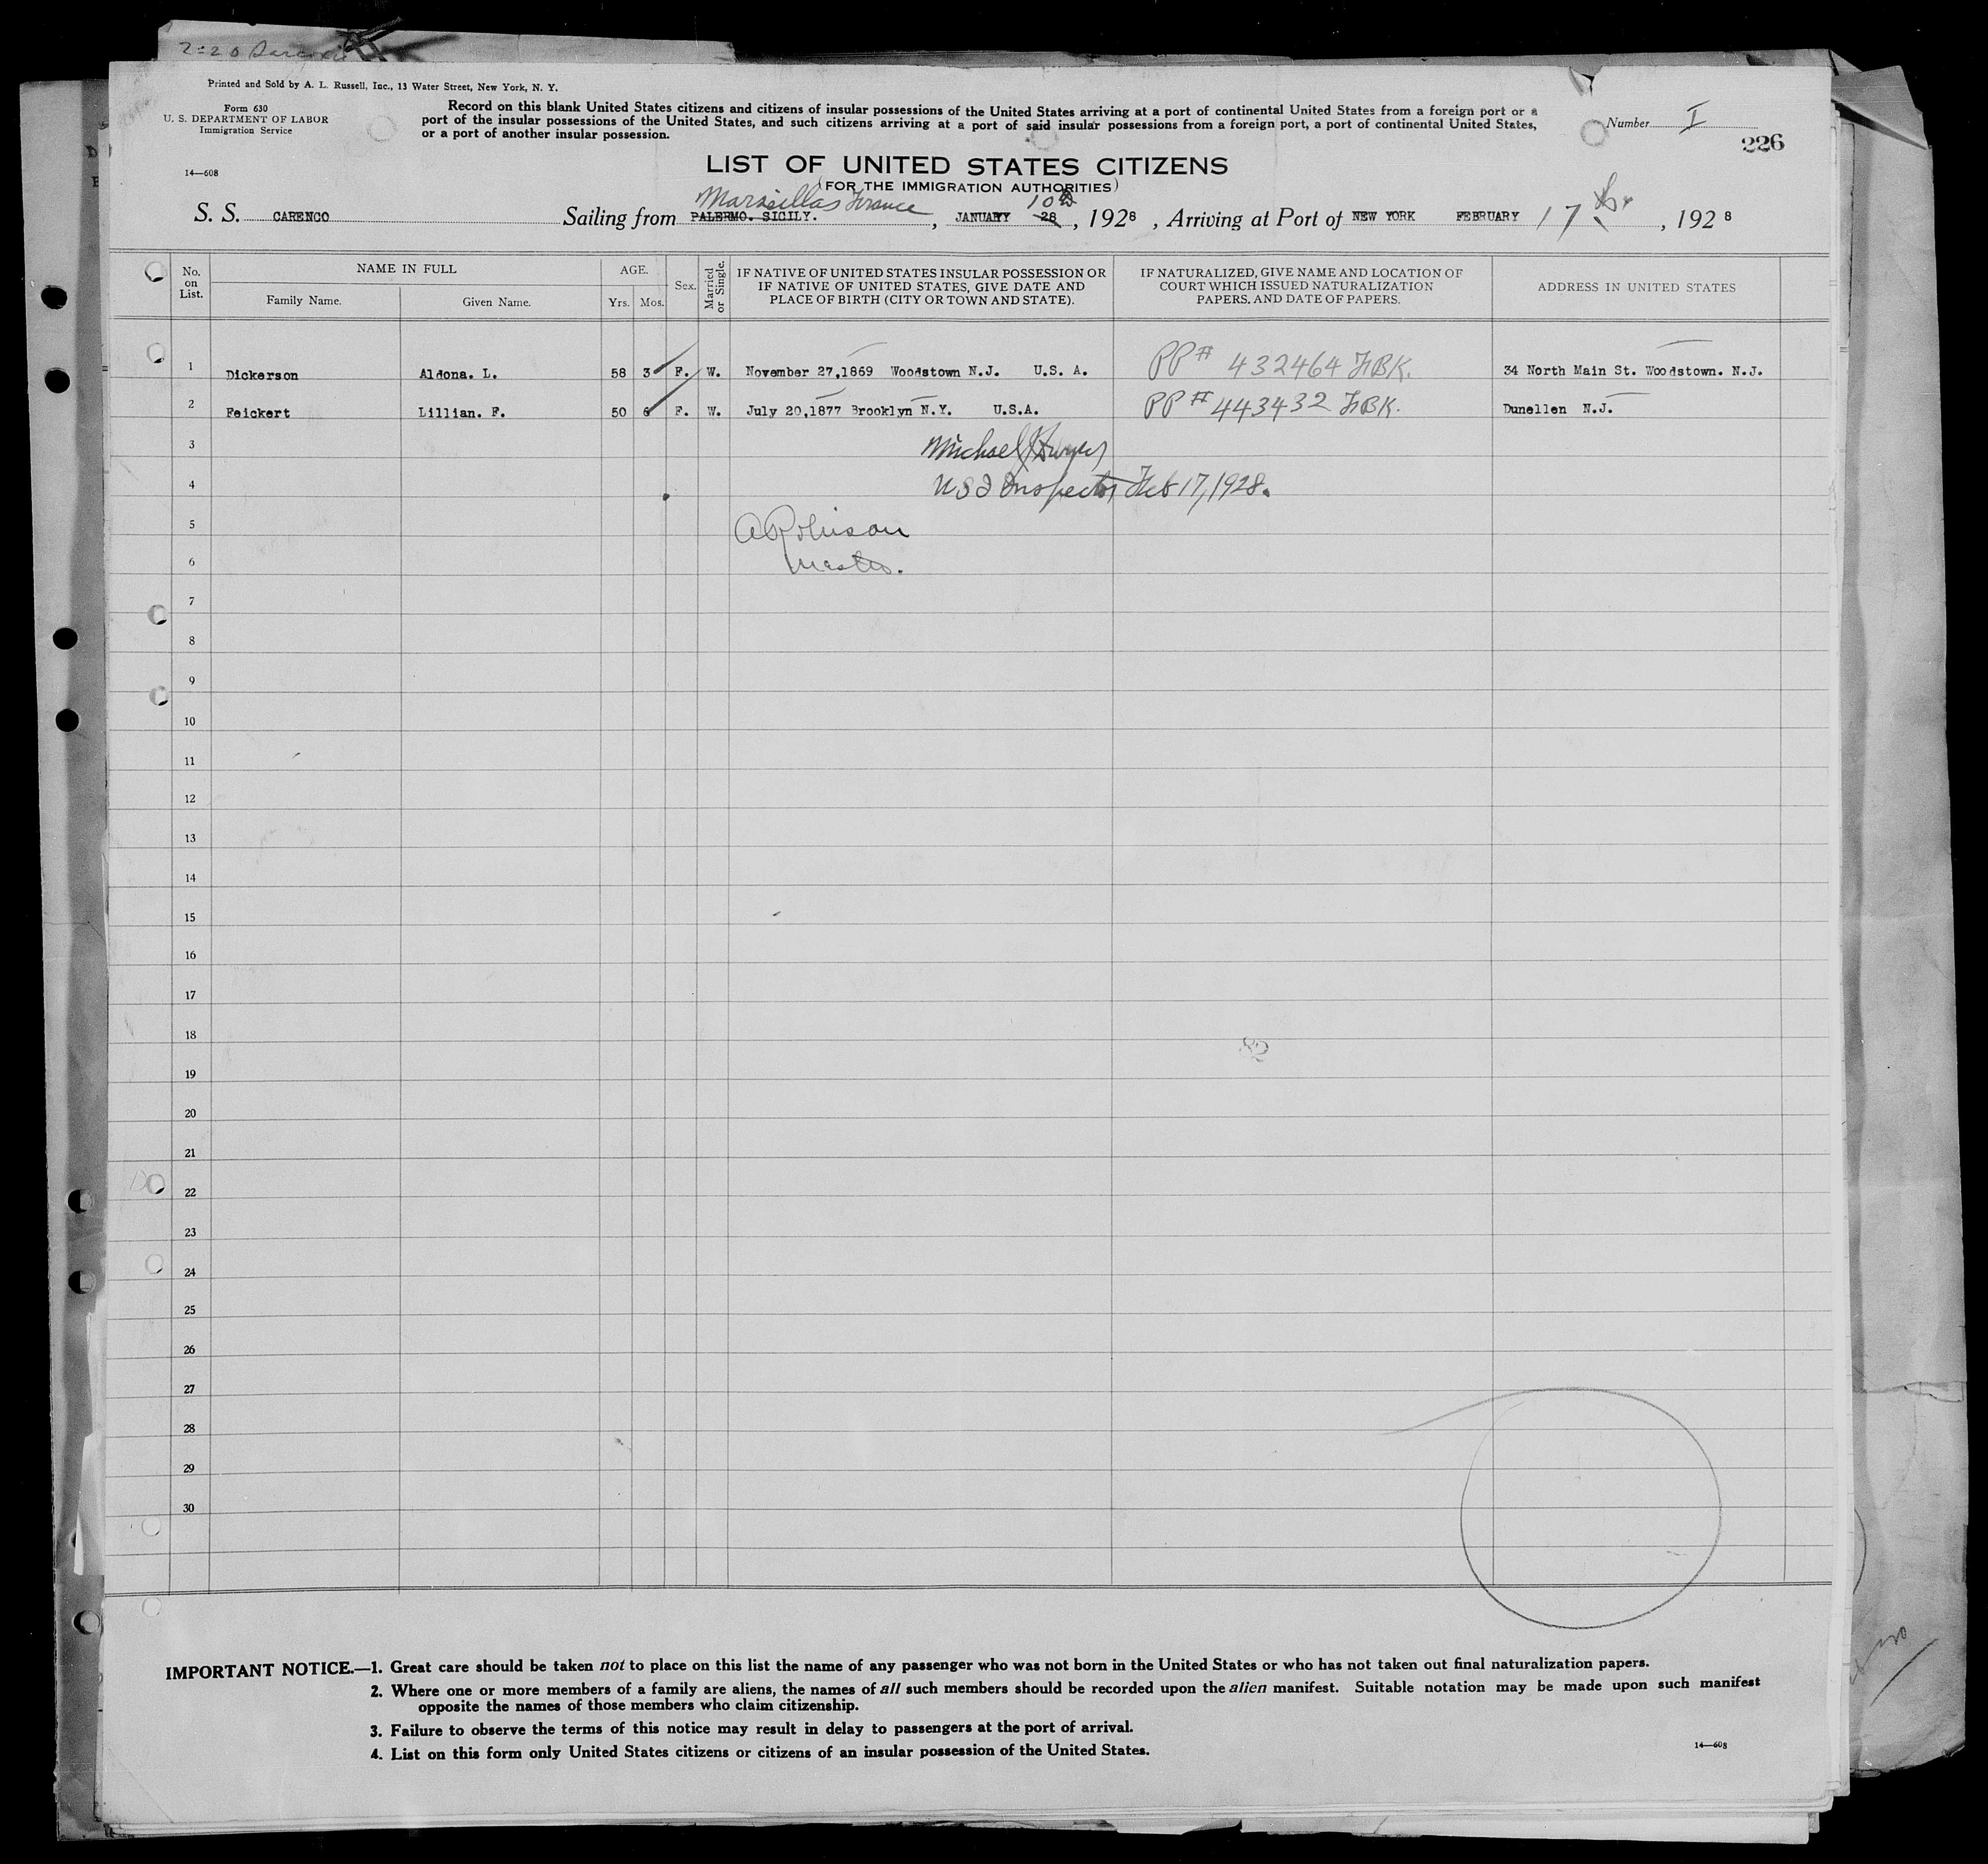 Printed and Sold by A. L. Russell, Inc., 13 Water Street, New York, N. Y.
Form 630
U. S. DEPARTMENT OF LABOR
Immigration Service
14—608
Record on this blank United States citizens and citizens of insular possessions of the United States arriving at a port of continental United States from a foreign port or a
port of the insular possessions of the United States, and such citizens arriving at a port of said insular possessions from a foreign port, a port of continental United States,
or a port of another insular possession.
Number I
226
LIST OF UNITED STATES CITIZENS
(FOR THE IMMIGRATION AUTHORITIES)
Marseillas France 10th
S. S. CARENCO Sailing from PALERMO. SICILY. , JANUARY 28 , 1928 , Arriving at Port of NEW YORK FEBRUARY 17 , 1928
No. on List. NAME IN FULL Family Name. Given Name. AGE. Yrs. Mos. Sex. Married or Single. IF NATIVE OF UNITED STATES INSULAR POSSESSION OR IF NATIVE OF UNITED STATES, GIVE DATE AND PLACE OF BIRTH (CITY OR TOWN AND STATE). IF NATURALIZED, GIVE NAME AND LOCATION OF COURT WHICH ISSUED NATURALIZATION PAPERS, AND DATE OF PAPERS. ADDRESS IN UNITED STATES
1 Dickerson Aldona. L. 58 3 F. W. November 27,1869 Woodstown N.J. U.S. A. PP# 432464 FBK. 34 North Main St. Woodstown. N.J.
2 Feickert Lillian. F. 50 6 F. W. July 20,1877 Brooklyn N.Y. U.S.A. PP# 443432 FBK. Dunellen N.J.
3 Michael
4 USI Inspector Feb 17, 1928.
5 A Robinson
6 Master.
7
8
9
10
11
12
13
14
15
16
17
18
82
19
20
21
22
23
24
25
26
27
28
29
30
IMPORTANT NOTICE.—1. Great care should be taken not to place on this list the name of any passenger who was not born in the United States or who has not taken out final naturalization papers.
2. Where one or more members of a family are aliens, the names of all such members should be recorded upon the alien manifest. Suitable notation may be made upon such manifest
opposite the names of those members who claim citizenship.
3. Failure to observe the terms of this notice may result in delay to passengers at the port of arrival.
4. List on this form only United States citizens or citizens of an insular possession of the United States.
14—608